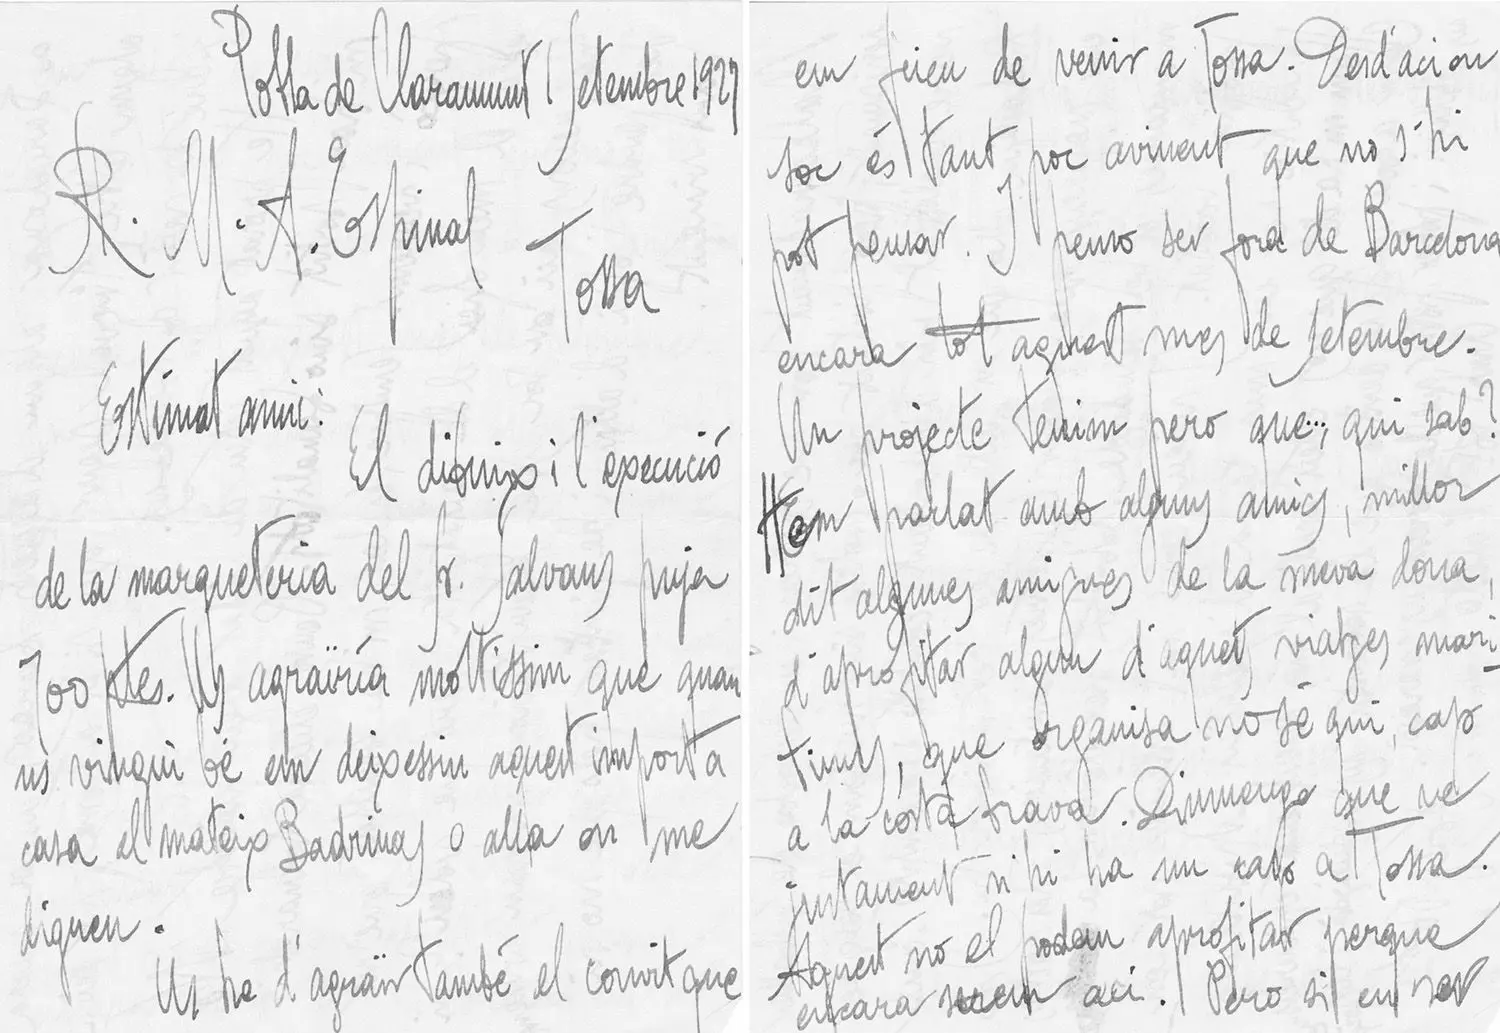 Pobla de Claramunt 1 Setembre 1927
R. M. A. Espinal
Tossa
Estimat amic:
El dibuix i l'execució
de la marqueteria del Sr. Salvans puja
700 ptes. Us agraïría moltissim que quan
us vingui bé em deixessin aquest import a
casa el mateix Badrinas o alla on me
diguen.
Us he d'agraïr també el convit que
em feieu de venir a Tossa. Desd'aci on
soc és tant poc avinent que no s'hi
pot pensar. I penso ser fora de Barcelona
encara tot aquest mes de Setembre.
Un projecte tenim pero que..., qui sab?
Hem parlat amb alguns amics, millor
dit algunes amigues de la meva dona,
d'aprofitar algun d'aquets viatges mari-
tims, que organisa no sé qui, cap
a la costa brava. Diumenge que ve
justament n'hi ha un cap a Tossa.
Aquest no el podem aprofitar perque
encara serem aci. Pero si en